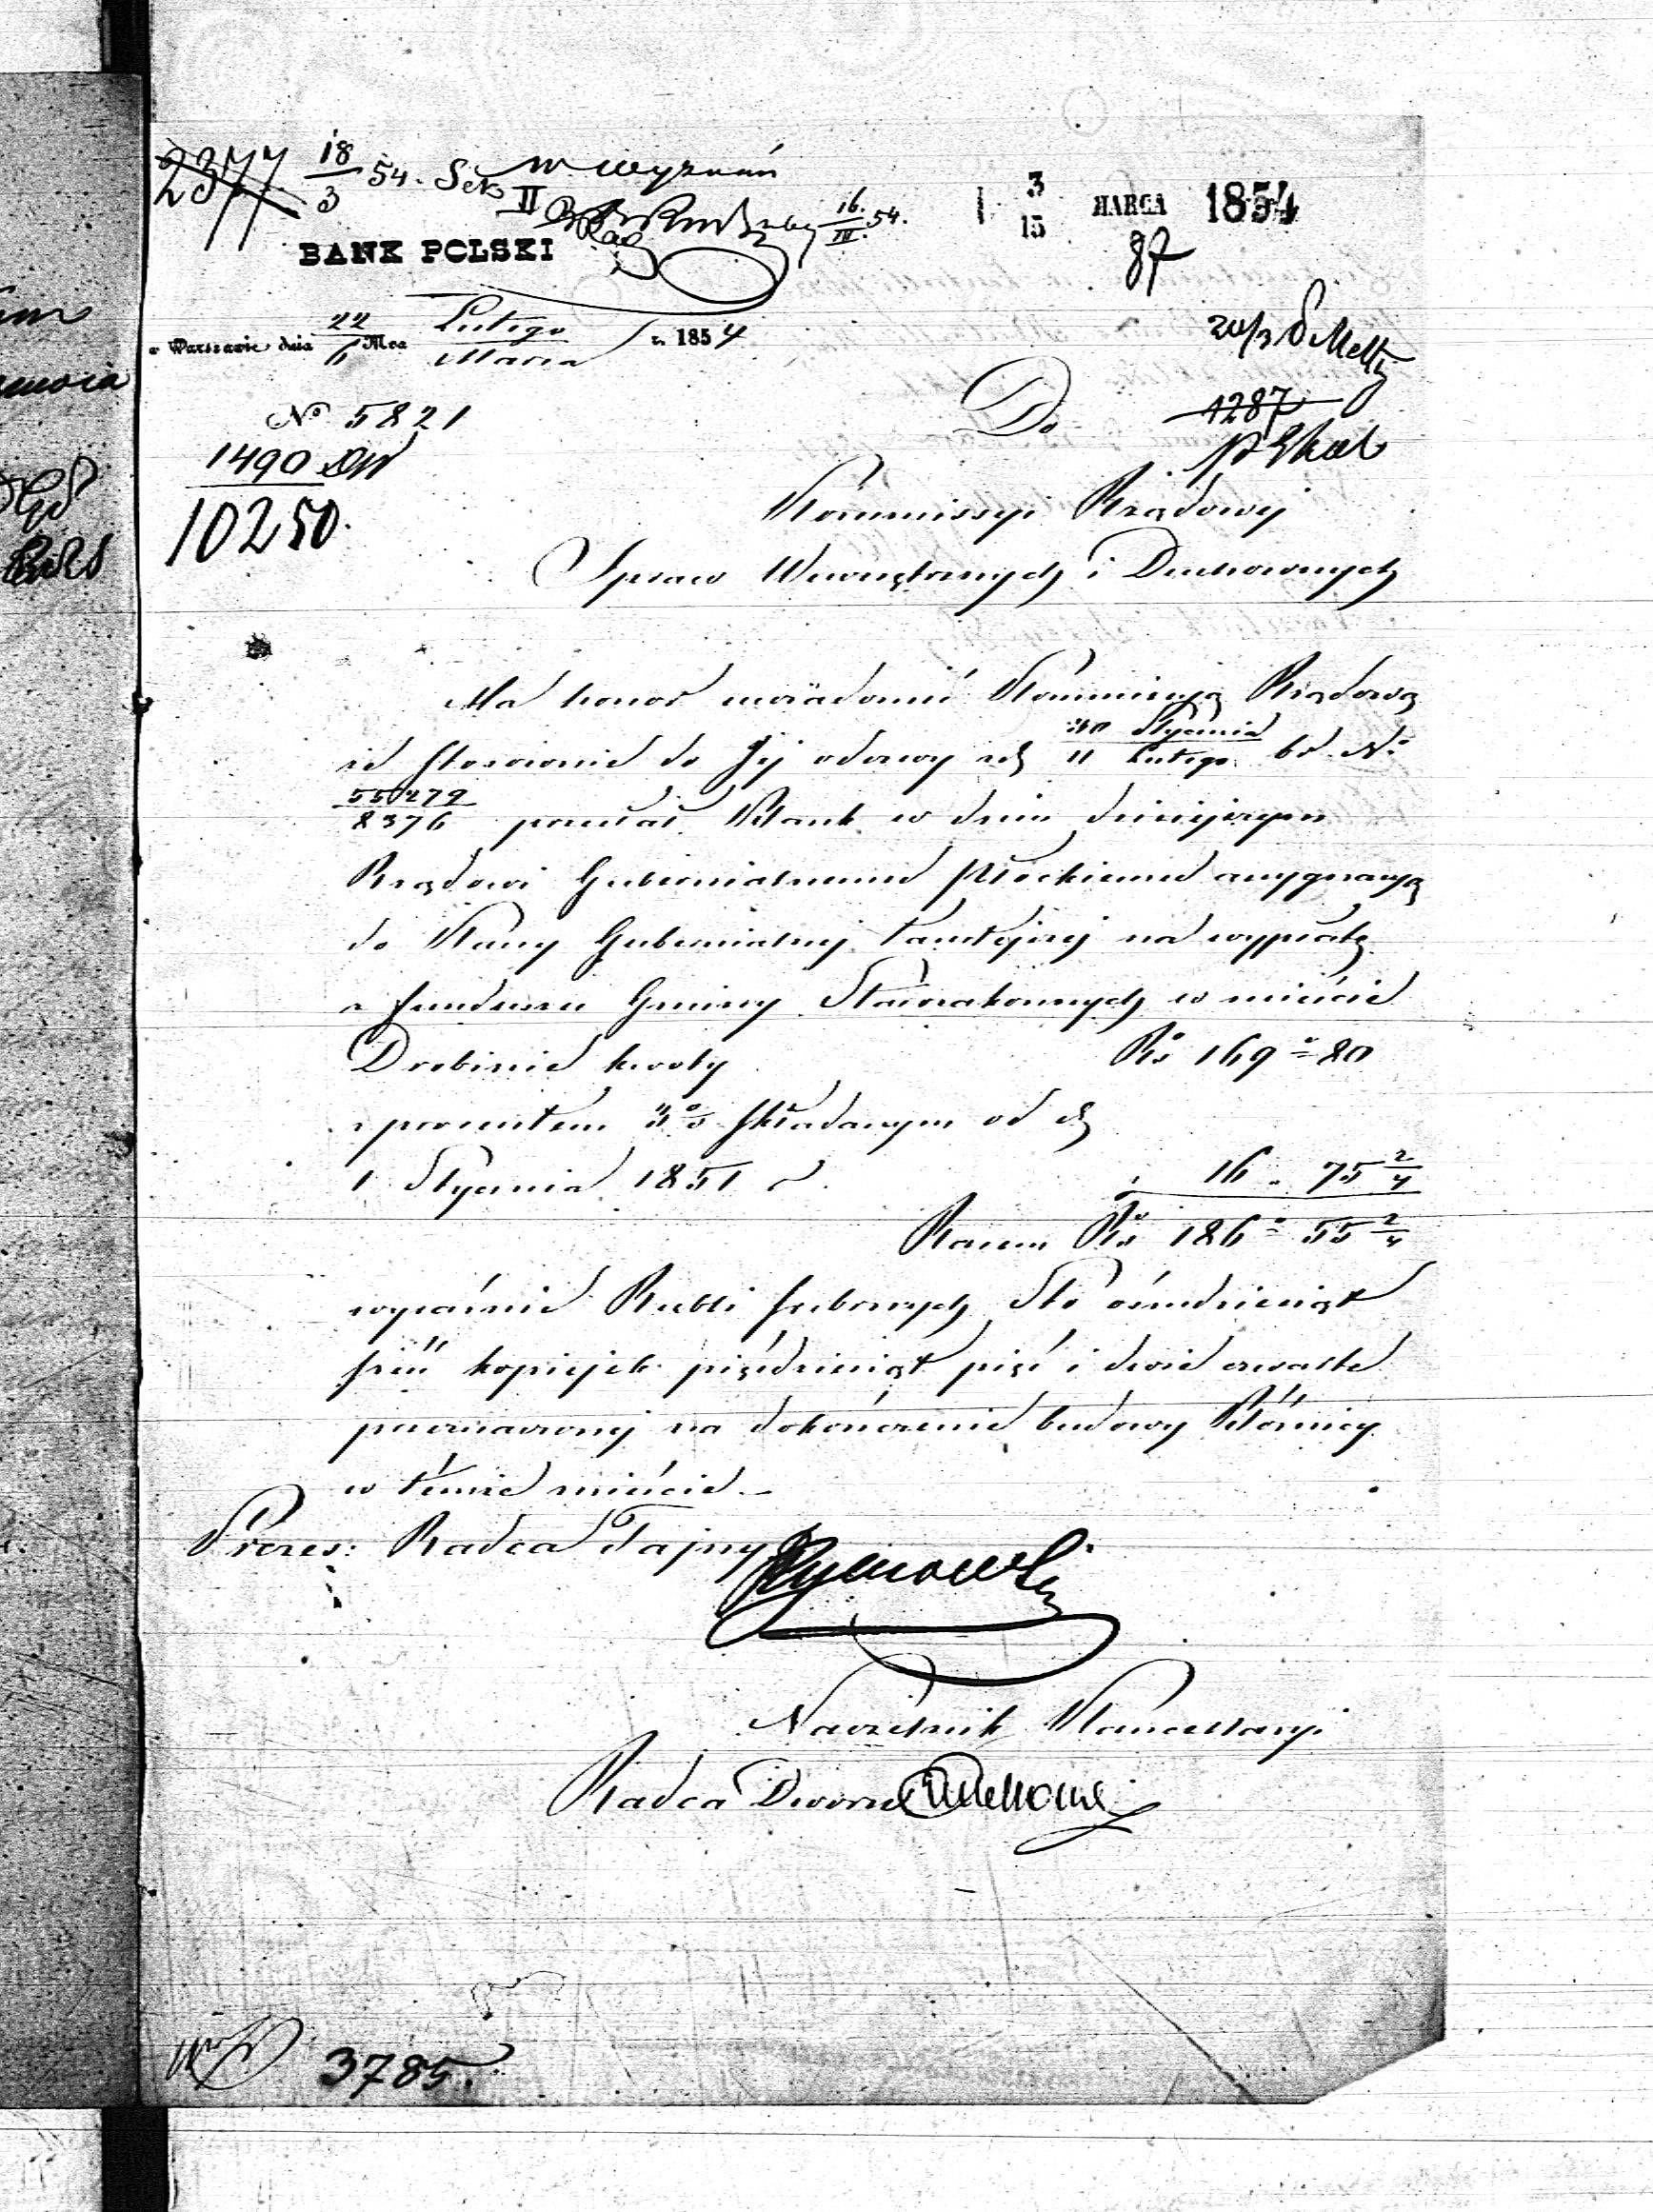 2377 18/3 54. Sek II
16/III 54.
3/15 MARCA 1854
87
BANK POLSKI
w Warszawie dnia 22/6 Mca Lutego/Marca r. 1854
20/3
No 5821
1287
Do
1490
10250.
Kommissyi Rządowej
Spraw Wewnętrznych i Duchownych
Ma honor uwiadomić Kommissyą Rządową
iż stosownie do Jej odezwy z d. 30 Stycznia/11 Lutego b.r. No
55279/8376 przesłał Bank w dniu dzisiejszym
Rządowi Gubernialnemu Płockiemu assygnacyą
do Kassy Gubernialnej tamtejszej na wypłatę
z funduszu Gminy Starozakonnych w mieście
Drobinie kwoty Rs 169 = 80
z procentem 3% składanym od d.
1 Stycznia 1851 r. „ 16 „ 75 2/4
Razem Rs 186 = 55 2/4
wyraźnie Rubli srebrnych Sto ośmdziesiąt
sześć kopiejek pięćdziesiąt pięć i dwie czwarte
przeznaczonej na dokończenie budowy Bóżnicy
w témże mieście.
Prezes: Radca Tajny
Naczelnik Kancellaryi
Radca Dworu
3785.